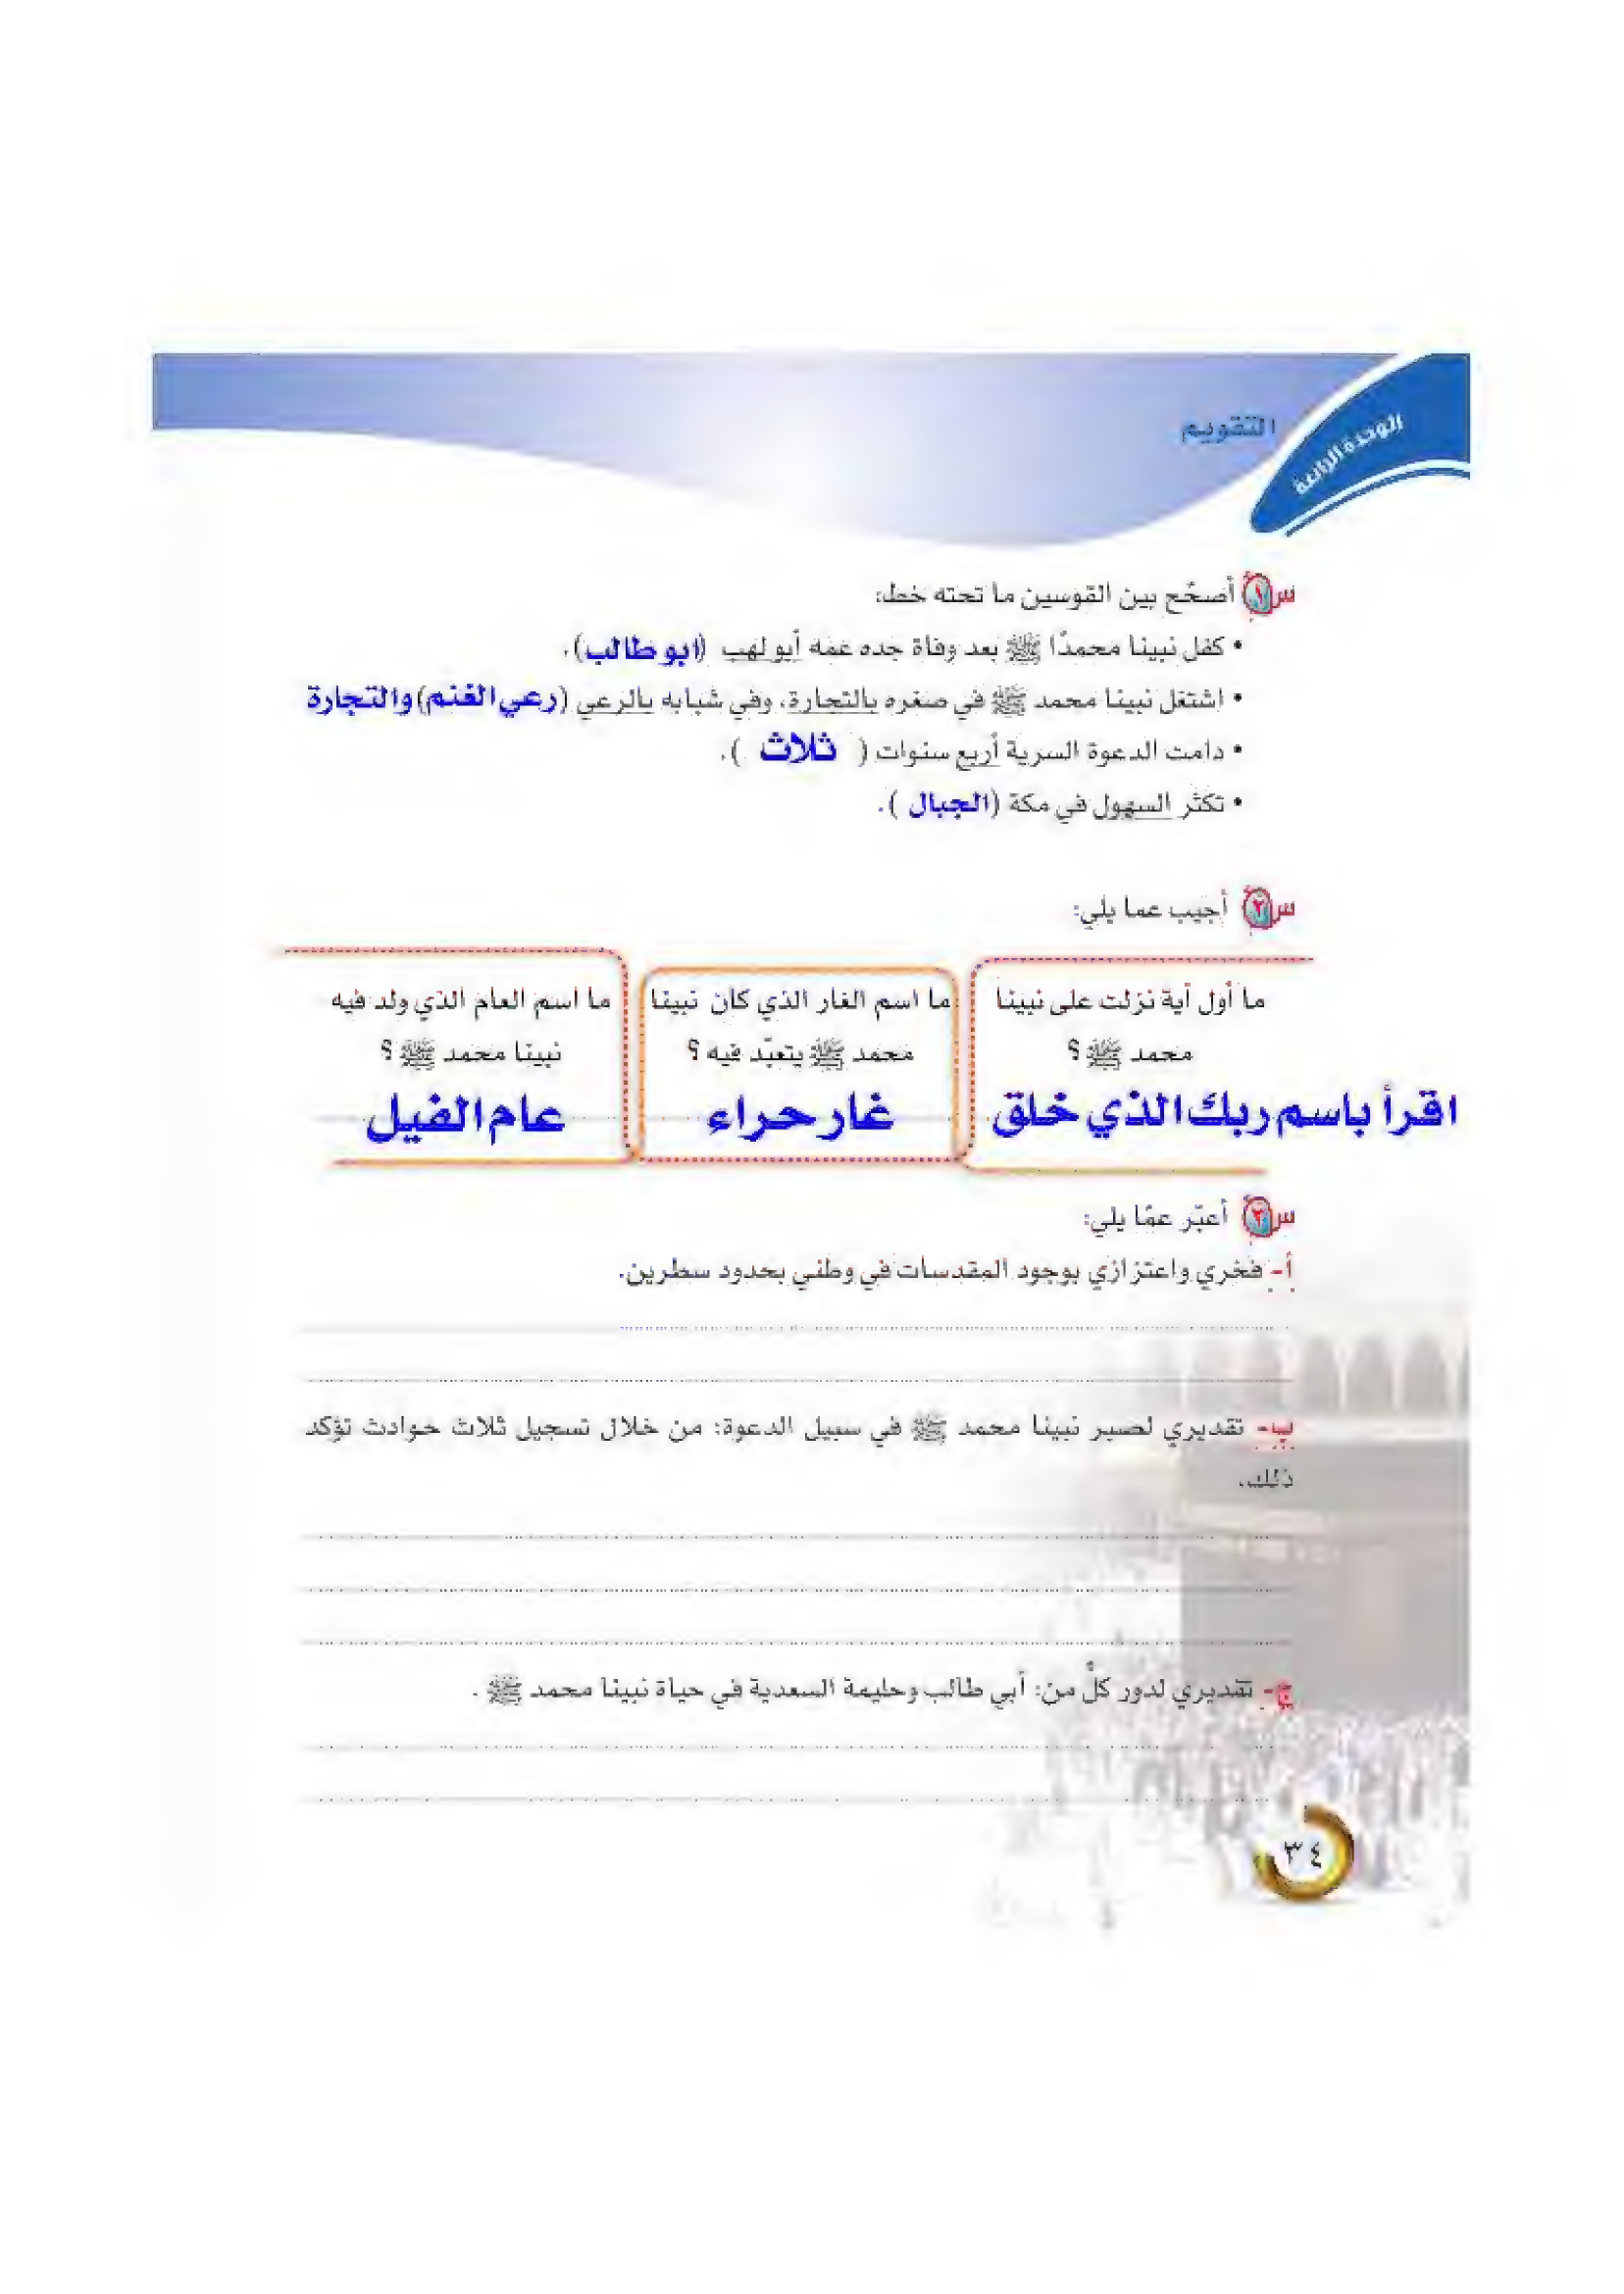 الوحدة الرابعة
التقويم
س١ أصحّح بين القوسين ما تحته خط:
• كفل نبينا محمدًا ﷺ بعد وفاة جده عمه أبو لهب (ابو طالب).
• اشتغل نبينا محمد ﷺ في صغره بالتجارة، وفي شبابه بالرعي (رعي الغنم) والتجارة
• دامت الدعوة السرية أربع سنوات ( ثلاث ).
• تكثر السهول في مكة (الجبال ).
س٢ أجيب عما يلي:
ما أول آية نزلت على نبينا
محمد ﷺ؟
اقرأ باسم ربك الذي خلق
ما اسم الغار الذي كان نبينا
محمد ﷺ يتعبّد فيه ؟
غار حراء
ما اسم العام الذي ولد فيه
نبينا محمد ﷺ؟
عام الفيل
س٣ أعبّر عمّا يلي:
أ- فخري واعتزازي بوجود المقدسات في وطني بحدود سطرين.
ب- تقديري لصبر نبينا محمد ﷺ في سبيل الدعوة: من خلال تسجيل ثلاث حوادث تؤكد
ذلك.
ج- تقديري لدور كلٌّ من: أبي طالب وحليمة السعدية في حياة نبينا محمد ﷺ .
٣٤